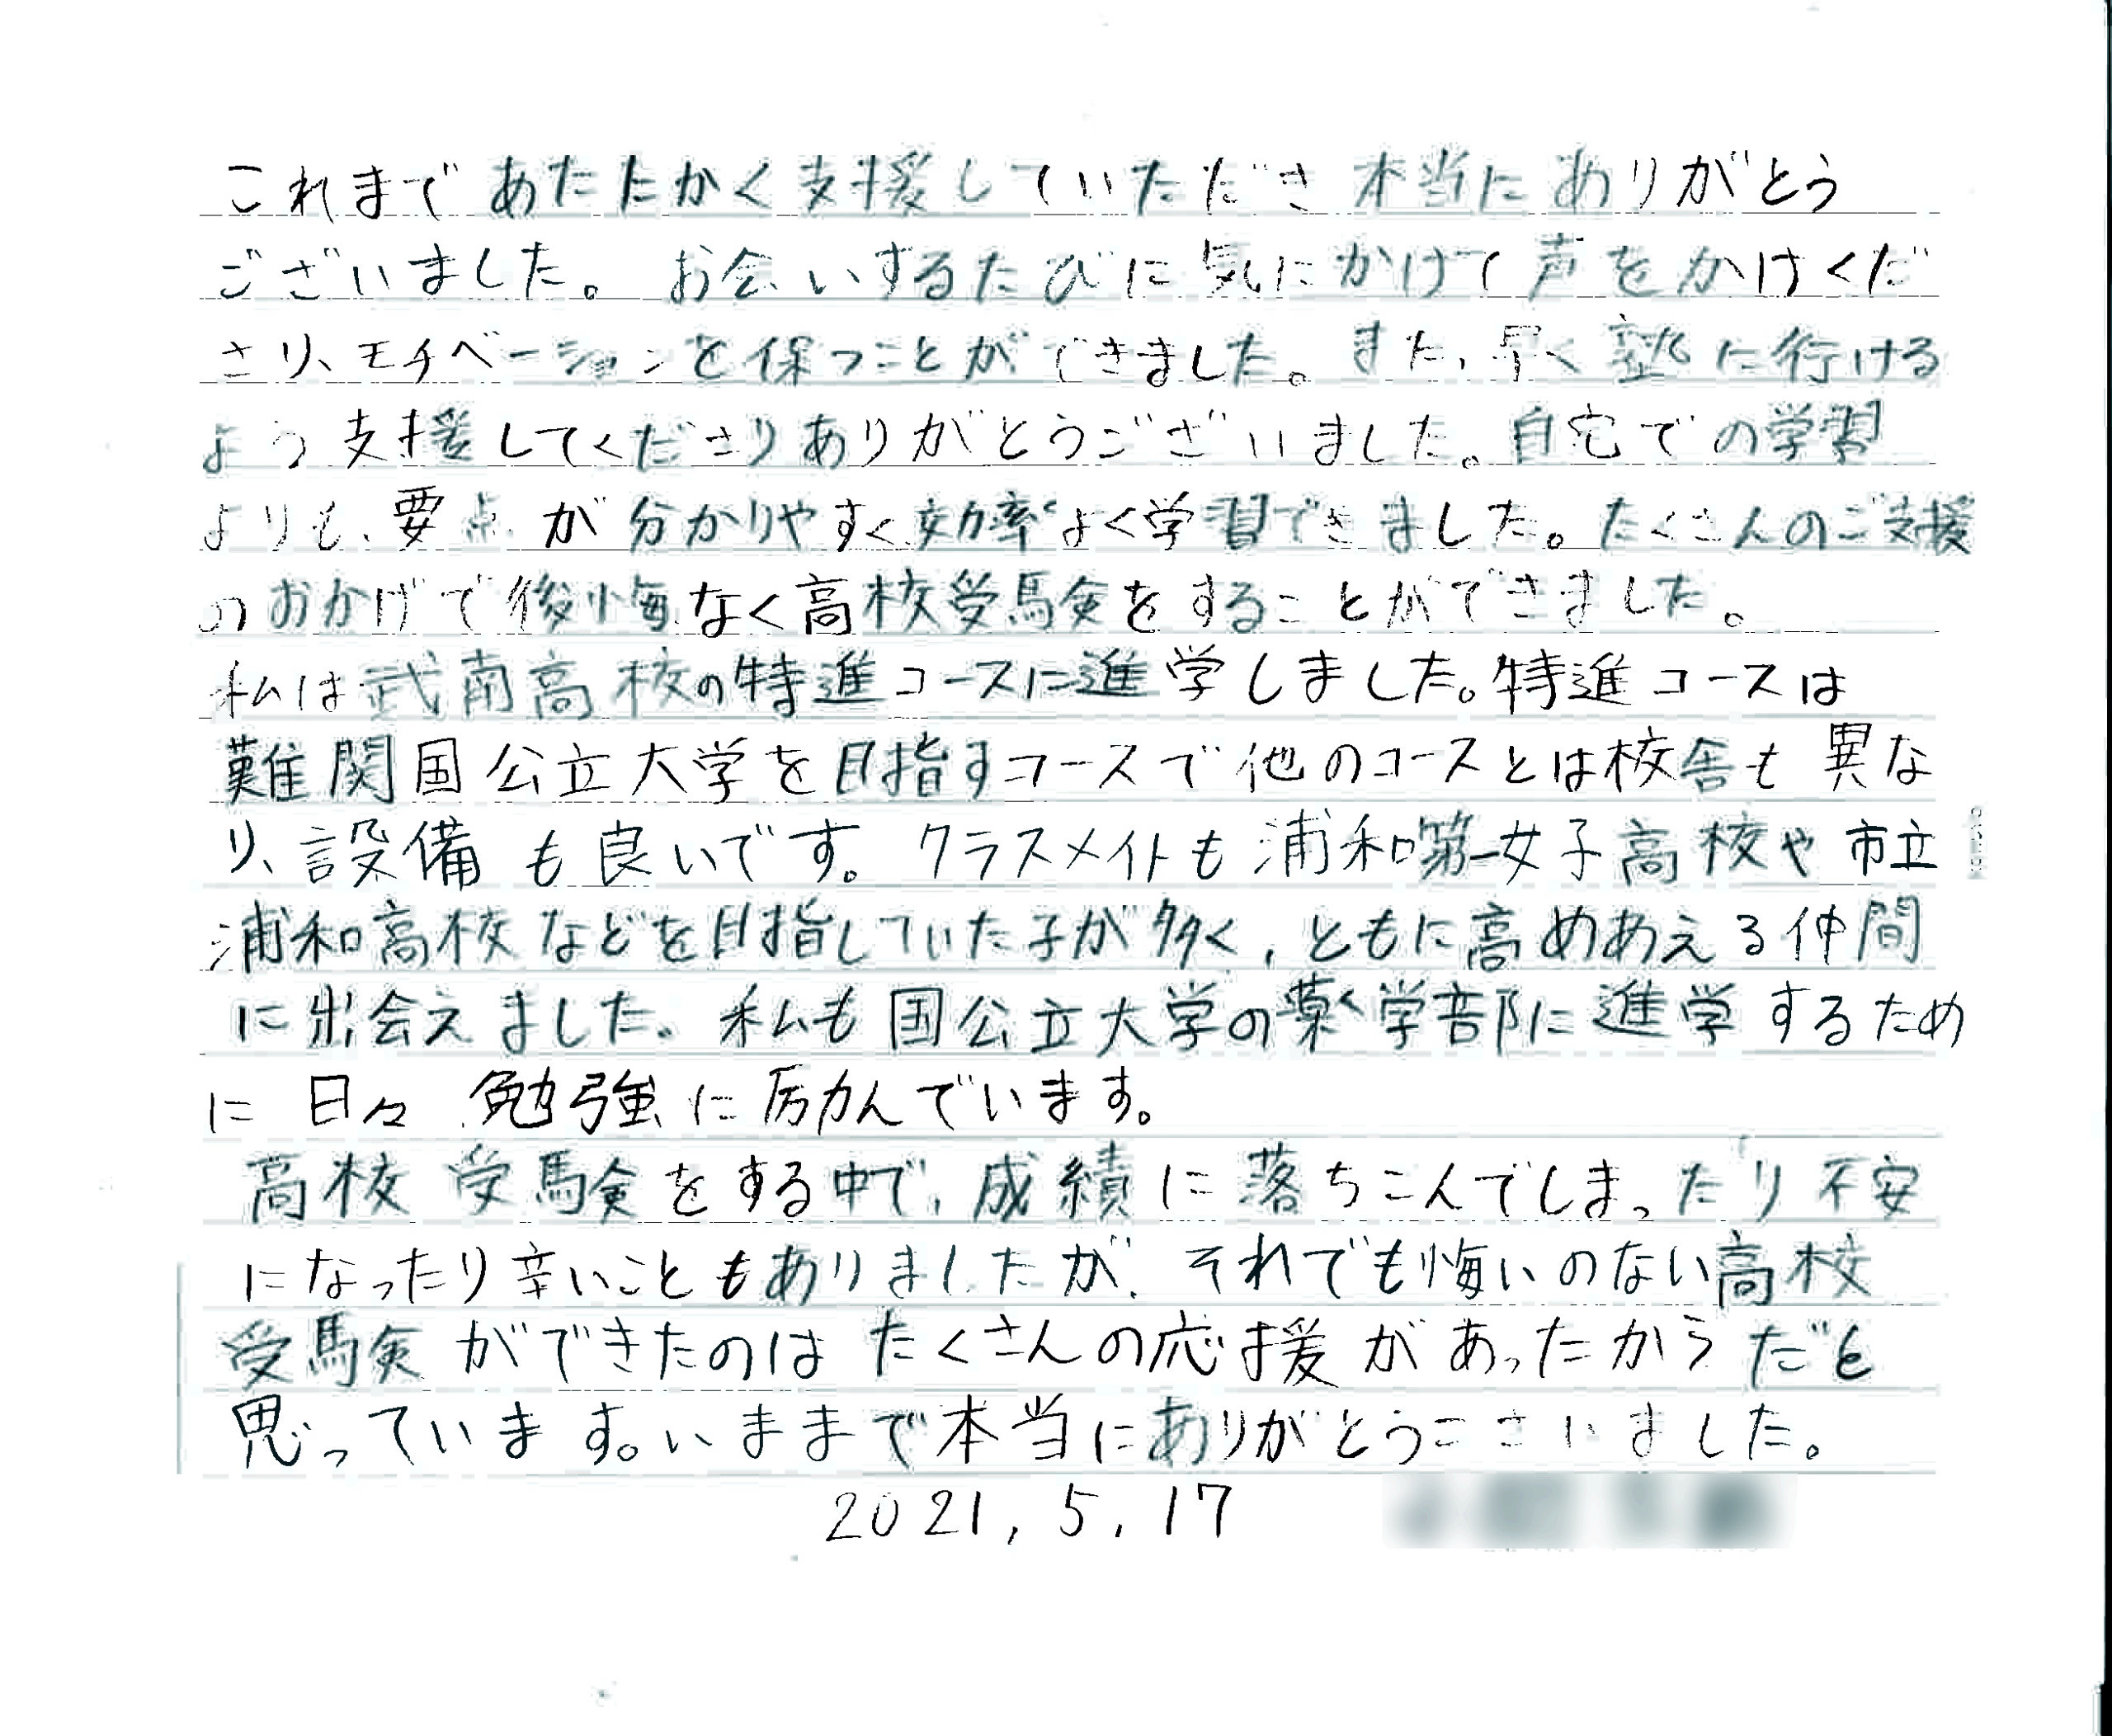 これまであたたかく支援していただき本当にありがとう
ございました。お会いするたびに気にかけて声をかけくだ
さり、モチベーションを保つことができました。また、早く塾に行ける
よう支援してくださりありがとうございました。自宅での学習
よりも、要点が分かりやすく効率よく学習できました。たくさんのご支援
のおかげで後悔なく高校受験をすることができました。
私は武南高校の特進コースに進学しました。特進コースは
難関国公立大学を目指すコースで他のコースとは校舎も異な
り、設備も良いです。クラスメイトも浦和第一女子高校や市立
浦和高校などを目指していた子が多く、ともに高めあえる仲間
に出会えました。私も国公立大学の薬学部に進学するため
に日々勉強に励んでいます。
高校受験をする中で、成績に落ちこんでしまったり不安
になったり辛いこともありましたが、それでも悔いのない高校
受験ができたのはたくさんの応援があったからだと
思っています。いままで本当にありがとうございました。
2021.5.17